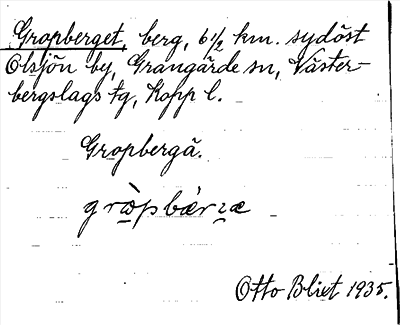 Gropberget, berg, 6½ km. sydöst
Olsjön by, Grangärde sn, Väster-
bergslags tg, Kopp l.
Gropbergä.
Otto Blixt 1935.